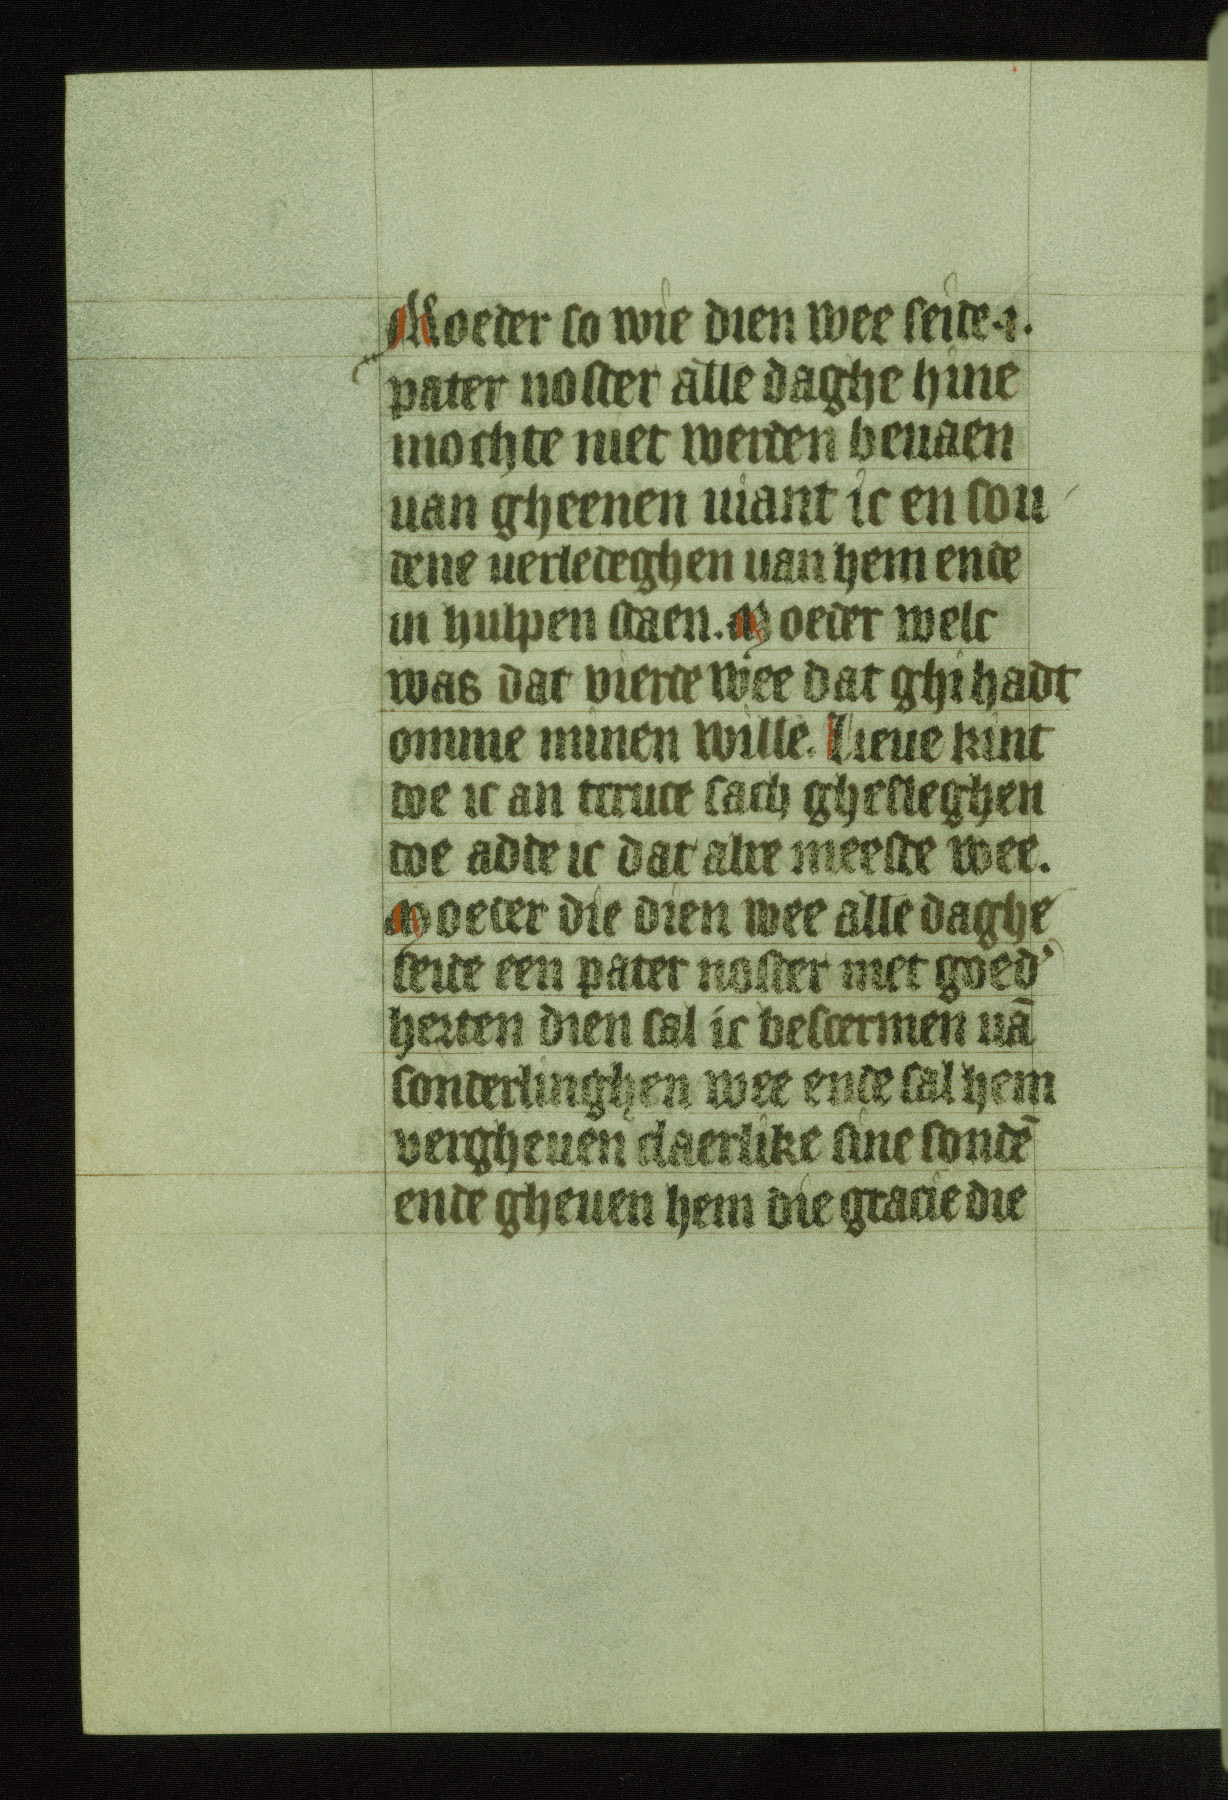 Moeder so wie dien wee seide .i.
pater noster alle daghe hine
mochte niet werden beuaen
uan gheenen uiant ic en sou
dene uerledeghen uan hem ende
in hulpen staen. Moeder welc
was dat vierde wee dat ghi hadt
omme minen wille. Lieue kint
doe ic an tcruce sach ghesleghen
doe adde ic dat alre meeste wee.
Moeder die dien wee alle daghe
seide een pater noster met goed'
herten dien sal ic bescermen uā
sonderlinghen wee ende sal hem
vergheuen claerlike sine sondē
ende gheuen hem die gracie die